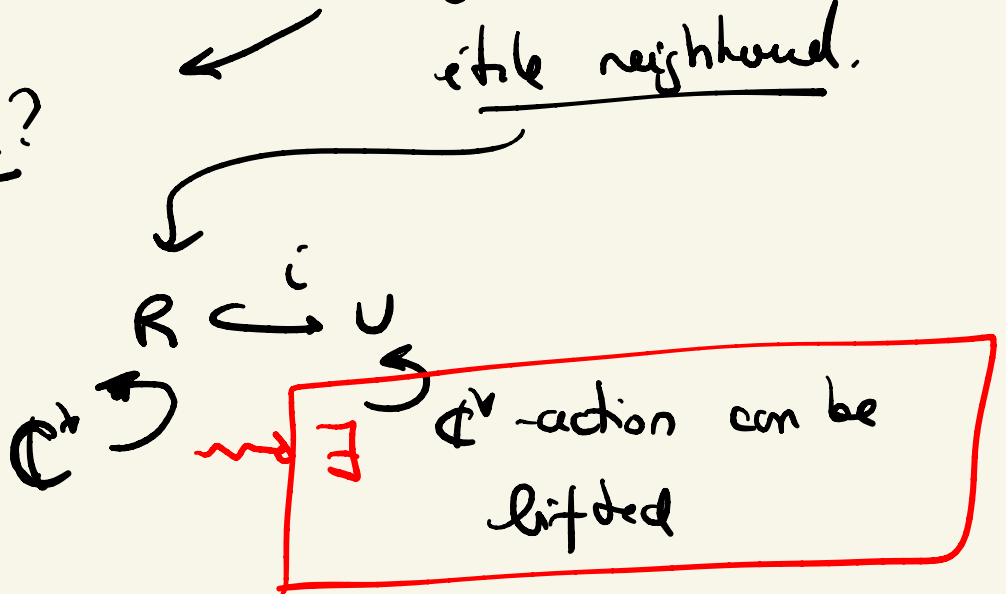 étale neighborhood.
?
i
R ↪ U
ℂ* ∃ ℂ*-action can be
lifted